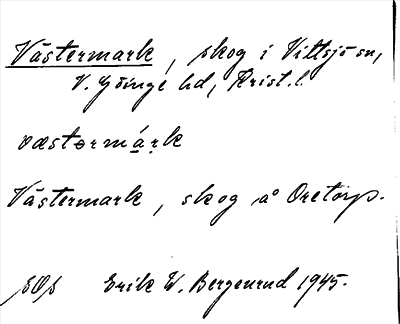 Västermark, skog i Vittsjö sn,
V. Göinge hd, Krist. l.
væstərmárk
Västermark, skog å Oretorp.
Erik W. Bergenrud 1945.